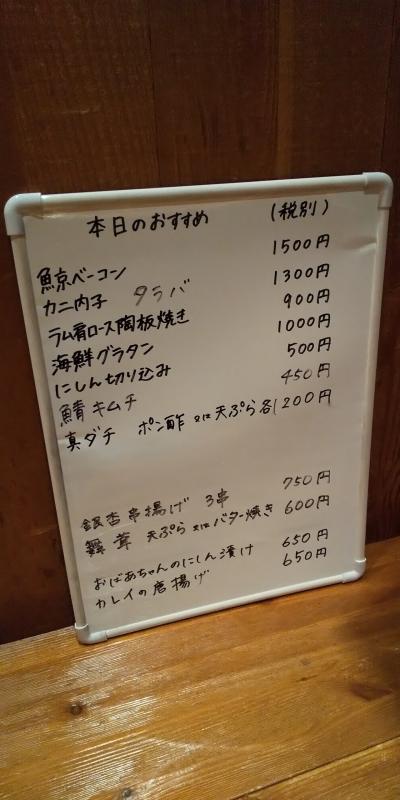 本日のおすすめ (税別)
鯨ベーコン 1500円
カニ内子 タラバ 1300円
ラム肩ロース陶板焼き 900円
海鮮グラタン 1000円
にしん切り込み 500円
鯖キムチ 450円
真ダチ ポン酢 又は 天ぷら各1200円
銀杏串揚げ 3串 750円
舞茸 天ぷら 又は バター焼き 600円
おばあちゃんのにしん漬け 650円
カレイの唐揚げ 650円